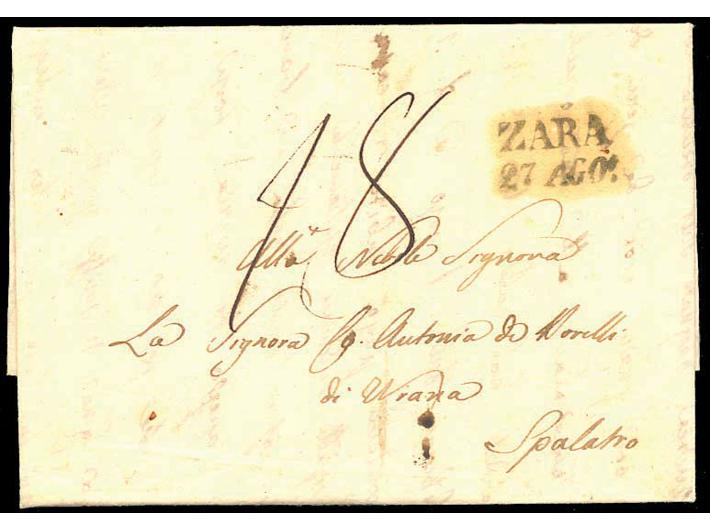 ZARA
27 AGO.
18
Alla Nobile Signora
La Signora Co. Antonia de Borelli
di Wrana
Spalatro